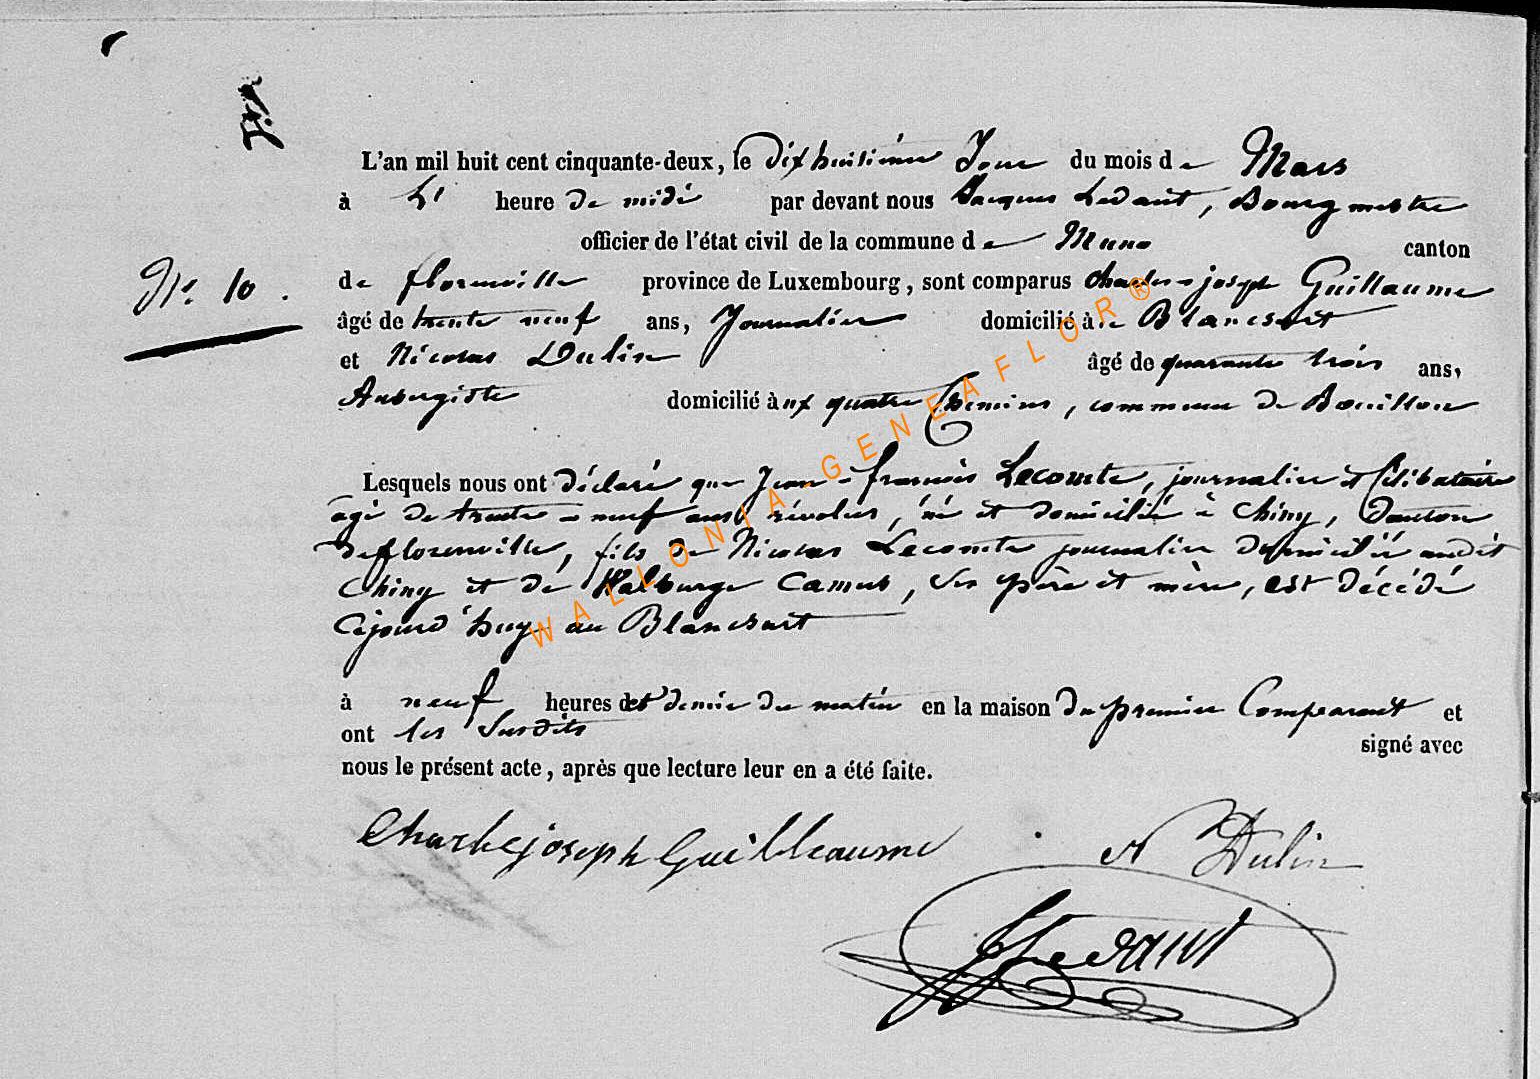 L'an mil huit cent cinquante-deux, le dixhuitième Jour du mois de Mars
à L' heure de midi par devant nous Jacques Ledant, Bourgmestre
officier de l'état civil de la commune de Muno canton
N° 10. de florenville province de Luxembourg, sont comparus Charles-joseph Guillaume
âgé de trente neuf ans, Journalier domicilié à Blancsart
et Nicolas Dulin âgé de quarante trois ans,
Aubergiste domicilié aux quatre Chemins, commune de Bouillon
Lesquels nous ont déclaré que Jean-françois Lecomte, journalier et Célibataire
âgé de trente-neuf ans révolus, né et domicilié à Chiny, Canton
de florenville, fils de Nicolas Lecomte journalier domicilié audit
Chiny et de Walburge Camus, Ses père et mère, est décédé
Cejourd'huy au Blancsart
à neuf heures et demie du matin en la maison du premier Comparant et
ont les Susdits signé avec
nous le présent acte, après que lecture leur en a été faite.
Charlejoseph Guilleaume N Dulin
JLedant
WALLONIA-GENEAFLOR®